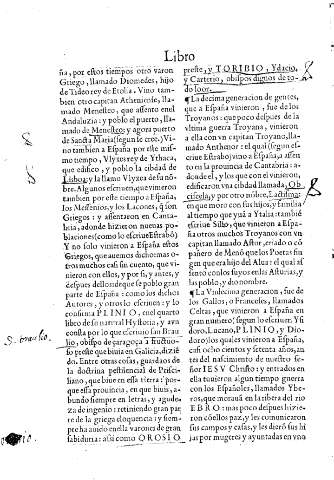 Libro
ña, por estos tiempos otro varon
Griego, llamado Diomedes, hijo
de Tideo rey de Etolia. Vino tam
bien otro capitan Atheniense, lla-
mado Menesteo, que assento enel
Andaluzia: y poblo el puerto, lla-
mado de Menesteo; y agora puerto
de Sancta Maria (segun se cree.) Vi-
no tambien a España por este mis
mo tiempo, Vlysses rey de Ythaca,
que edifico, y poblo la cibdad de
Lisboa: y la llamo Vlyxea de su nõ-
bre. Algunos escriuen, que vinieron
tambien por este tiempo a España,
los Messenios, y los Lacones, q̃ son
Griegos: y assentaron en Canta-
bria, adonde hizieron nueuas po-
blaciones (como lo escriue Estrabõ)
Y no solo vinieron a España estos
Griegos, que auemos dicho: mas o-
tros muchos casi sin cuento, que vi-
nieron con ellos, y por si, y antes, y
despues dellos: de que se poblo gran
parte de España: como los dichos
Autores, y otros lo escriuen: y lo
confirma PLINIO, en el quarto
libro de su natural Hystoria, y aun
consta por lo que escriuio san Brau
lio, obispo de çaragoça a fructuo-
so preste que biuia en Galicia, dizié
do. Entre otras cosas, guardaos de
la doctrina pestilencial de Prisci-
liano, que biue en essa tierra: por-
que essa prouincia, en que biuis, a-
bundo siempre en letras, y agude-
za de ingenio: retiniendo gran par
te de la griega eloquencia: y siem-
pre ha auido en ella varones de gran
sabiduria: assi como OROSIO
preste, y TORIBIO, Ydacio,
y Carterio, obispos dignos de to-
do loor.
¶ La decima generacion de gentes,
que a España vinieron, fue de los
Troyanos: que poco despues de la
vltima guerra Troyana, vinieron
a ella con vn capitan Troyano, lla-
mado Anthenor: el qual (segun es-
criue Estrabo) vino a España, y assen
to en la prouincia de Cantabria: a-
donde el, y los que con el vinieron,
edificaron vna cibdad llamada, Ob
sicela; y por otro nõbre,
en que moro con sus hijos, y familia
al tiempo que yua a Ytalia: tambié
escriue Silio, que vinieron a Espa-
ña otros muchos Troyanos con vn
capitan llamado Astur, criado o cõ
pañero de Menõ que los Poetas fin
gen que era hijo del Alua: el qual a-
sento con los suyos en las Asturias, y
las poblo, y dio nombre.
¶ La Vndecima generacion, fue de
los Gallos, o Franceses, llamados
Celtas, que vinieron a España en
gran numero (segun lo escriuen Ysi
doro, Lucano, PLINIO, y Dio-
doro) los quales vinieron a España,
casi ocho cientos y setenta años, an
tes del nascimiento de nuestro se-
ñor IESV Christo: y entrados en
ella truxeron algun tiempo guerra
con los Españoles, llamados Ybe-
ros, que morauã en la ribera del rio
EBRO: mas poco despues hizie-
ron cõellos paz, y les comunicaron
sus campos y casas, y les dierõ sus hi
jas por mugeres y ayuntadas en vno
S. braulio.